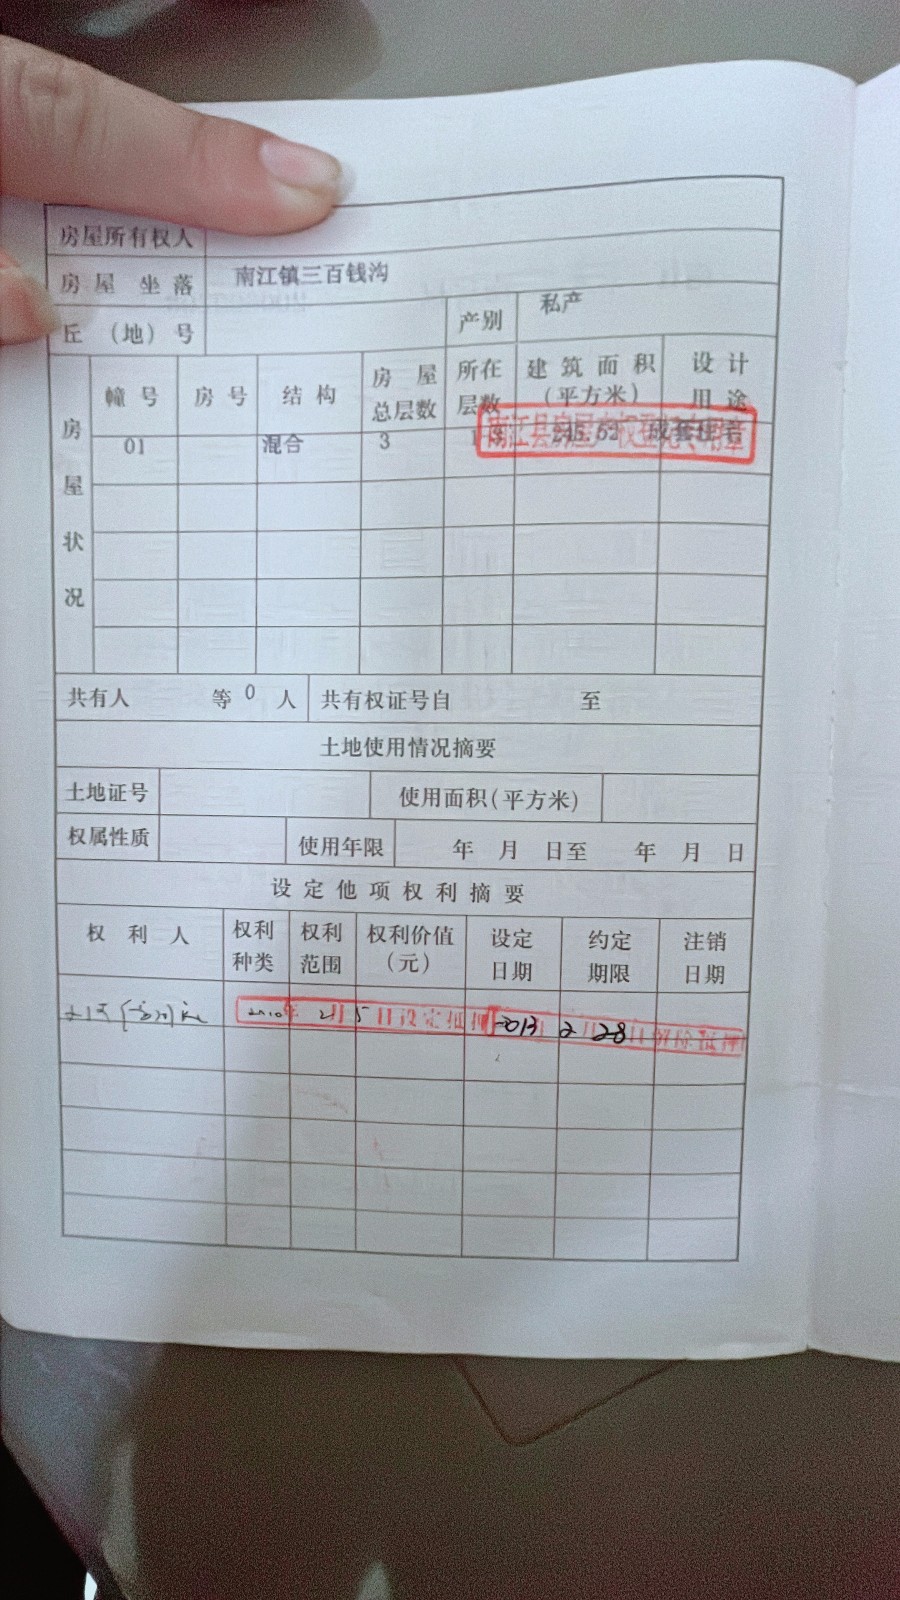 房屋所有权人
房屋坐落 南江镇三百钱沟
丘（地）号 产别 私产
房屋状况
幢号 房号 结构 房屋总层数 所在层数 建筑面积（平方米） 设计用途
01 混合 3 成套住宅
南江县房屋产权登记专用章
共有人 等 0 人 共有权证号自 至
土地使用情况摘要
土地证号 使用面积(平方米)
权属性质 使用年限 年 月 日至 年 月 日
设定他项权利摘要
权利人 权利种类 权利范围 权利价值（元） 设定日期 约定期限 注销日期
2010年2月5日设定抵押 2013 2月28日解除抵押